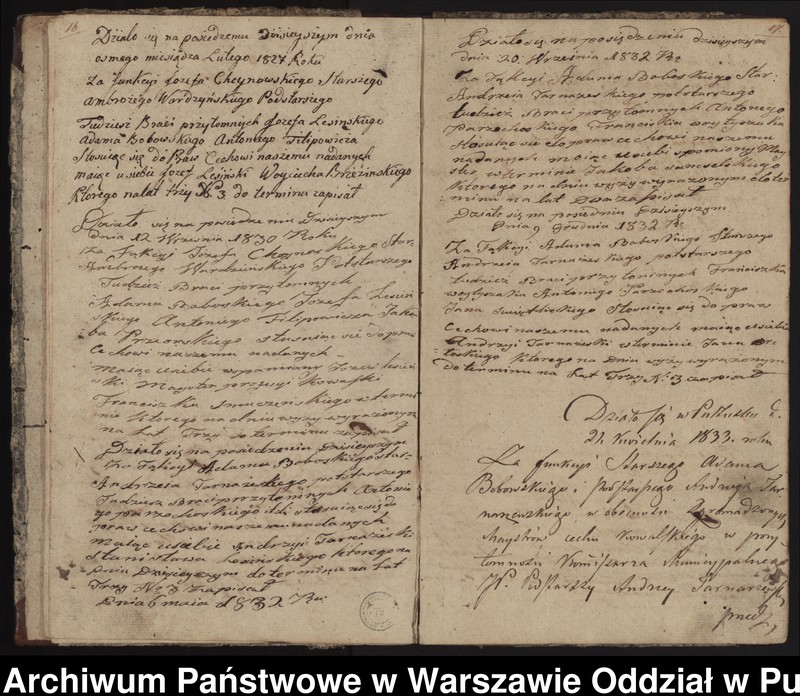 16.
Działo się na posiedzeniu Dzisieyszem dnia
osmego miesiądza Lutego 1827 Roku
Za funkcyi Jozefa Choynowskiego Starszego
Ambrożego Wardzyńskiego Podstarszego
Tudziesz Braci przytomnych Jozefa Lesinskiego
Adama Bobowskiego Antoniego Filipowicza
Stosuiąc się do Praw Cechowi naszemu nadanych
maiąc u siebi Jozef Lesiński Woyciecha Brzezinskiego
Ktorego na lat trzy No 3 do terminu zapisał
Działo się na posiedzeniu Dzisieyszym
dnia 12 Wrzesnia 1830 Roku
Za Fąkcyi Jozefa Choynoskiego Star.
Ambrozego Wardzinskiego Potstarszego
Tudziesz Braci przytomnych
Adama Baboskiego Jozefa Lesiń
skiego Antoniego Filipowicza Jaku
ba stosuiąc sie do praw
Cechowi naszemu nadanych
Maiąc usiebie wspomniany Jozew Lesień
ski Mayster profesyi Kowalski
Franciszka w termi
nie ktorego na dniu wyzy wyrazonym
na Lat Trzy do terminu zapisał
Działo się na posiedzeniu Dzisieyszym
Za Fąkcyi Adama Baboskiego Star.
Andrzeia Tarnaźeskiego potstarszego
Tudziesz Braci przytomnych Antonie
go Parzochoskiego stosuiąc się do
praw cechowi naszemu nadanych
Maiąc usiebie Andrzyi Tarnazeski
Stanisława ktorego na
dniu Dzisieyszym do terminu na Lat
Trzy No 3 zapisał
Dnia 6 maia d 1832 Ru
17.
Działo się na posiedzeniu Dzisieyszym
dnia 20 Września 1832 Ru
Za Fąkcyi Adama Baboskiego Star.
Andrzeia Tarnazeskiego potstarszego
tudziesz Braci przytomnych Antonego
Parzochoskiego Franciszka
stosuiąc sie do praw cechowi naszemu
nadanych maiąc u siebi May
ster w terminie Jakoba
ktorego na dniu wyzy wyrazonym do ter
minu na Lat Dwa zapisał
Działo się na posiedniu Dzisieyszym
Dnia 9 Grudnia 1832 Ru
Za Fąkcyi Adama Baboskiego Starszego
Andrzeia Tarnazeskiego potstarszego
tudziesz Braci przytomnych Franciszka
Antoniego Parzochoskiego
Jana Stosuiąc się do praw
Cechowi naszemu nadanych maiąc u siebie
Andrzyi Tarnazeski w terminie Jana
ktorego na Dniu wyzy wyrazonym
do terminu na Lat Trzy No 3 zapisał
Działo się w Pułtusku d.
21 Kwietnia 1833. roku
Za funkcyi Starszego Adama
Bobowskiego i Podstarszego Andrzeja Tar
w obecności Zgromadzonych
Maystrów cechu Kowalskiego w przy
tomności Kommissarza Municypalnego
Podstarszy Andrzey
przed
Archiwum Państwowe w Warszawie Oddział w Pu